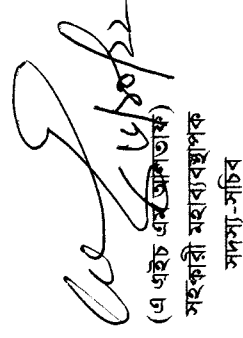 (এ এইচ এম আলতাফ)
সহকারী মহাব্যবস্থাপক
সদস্য-সচিব